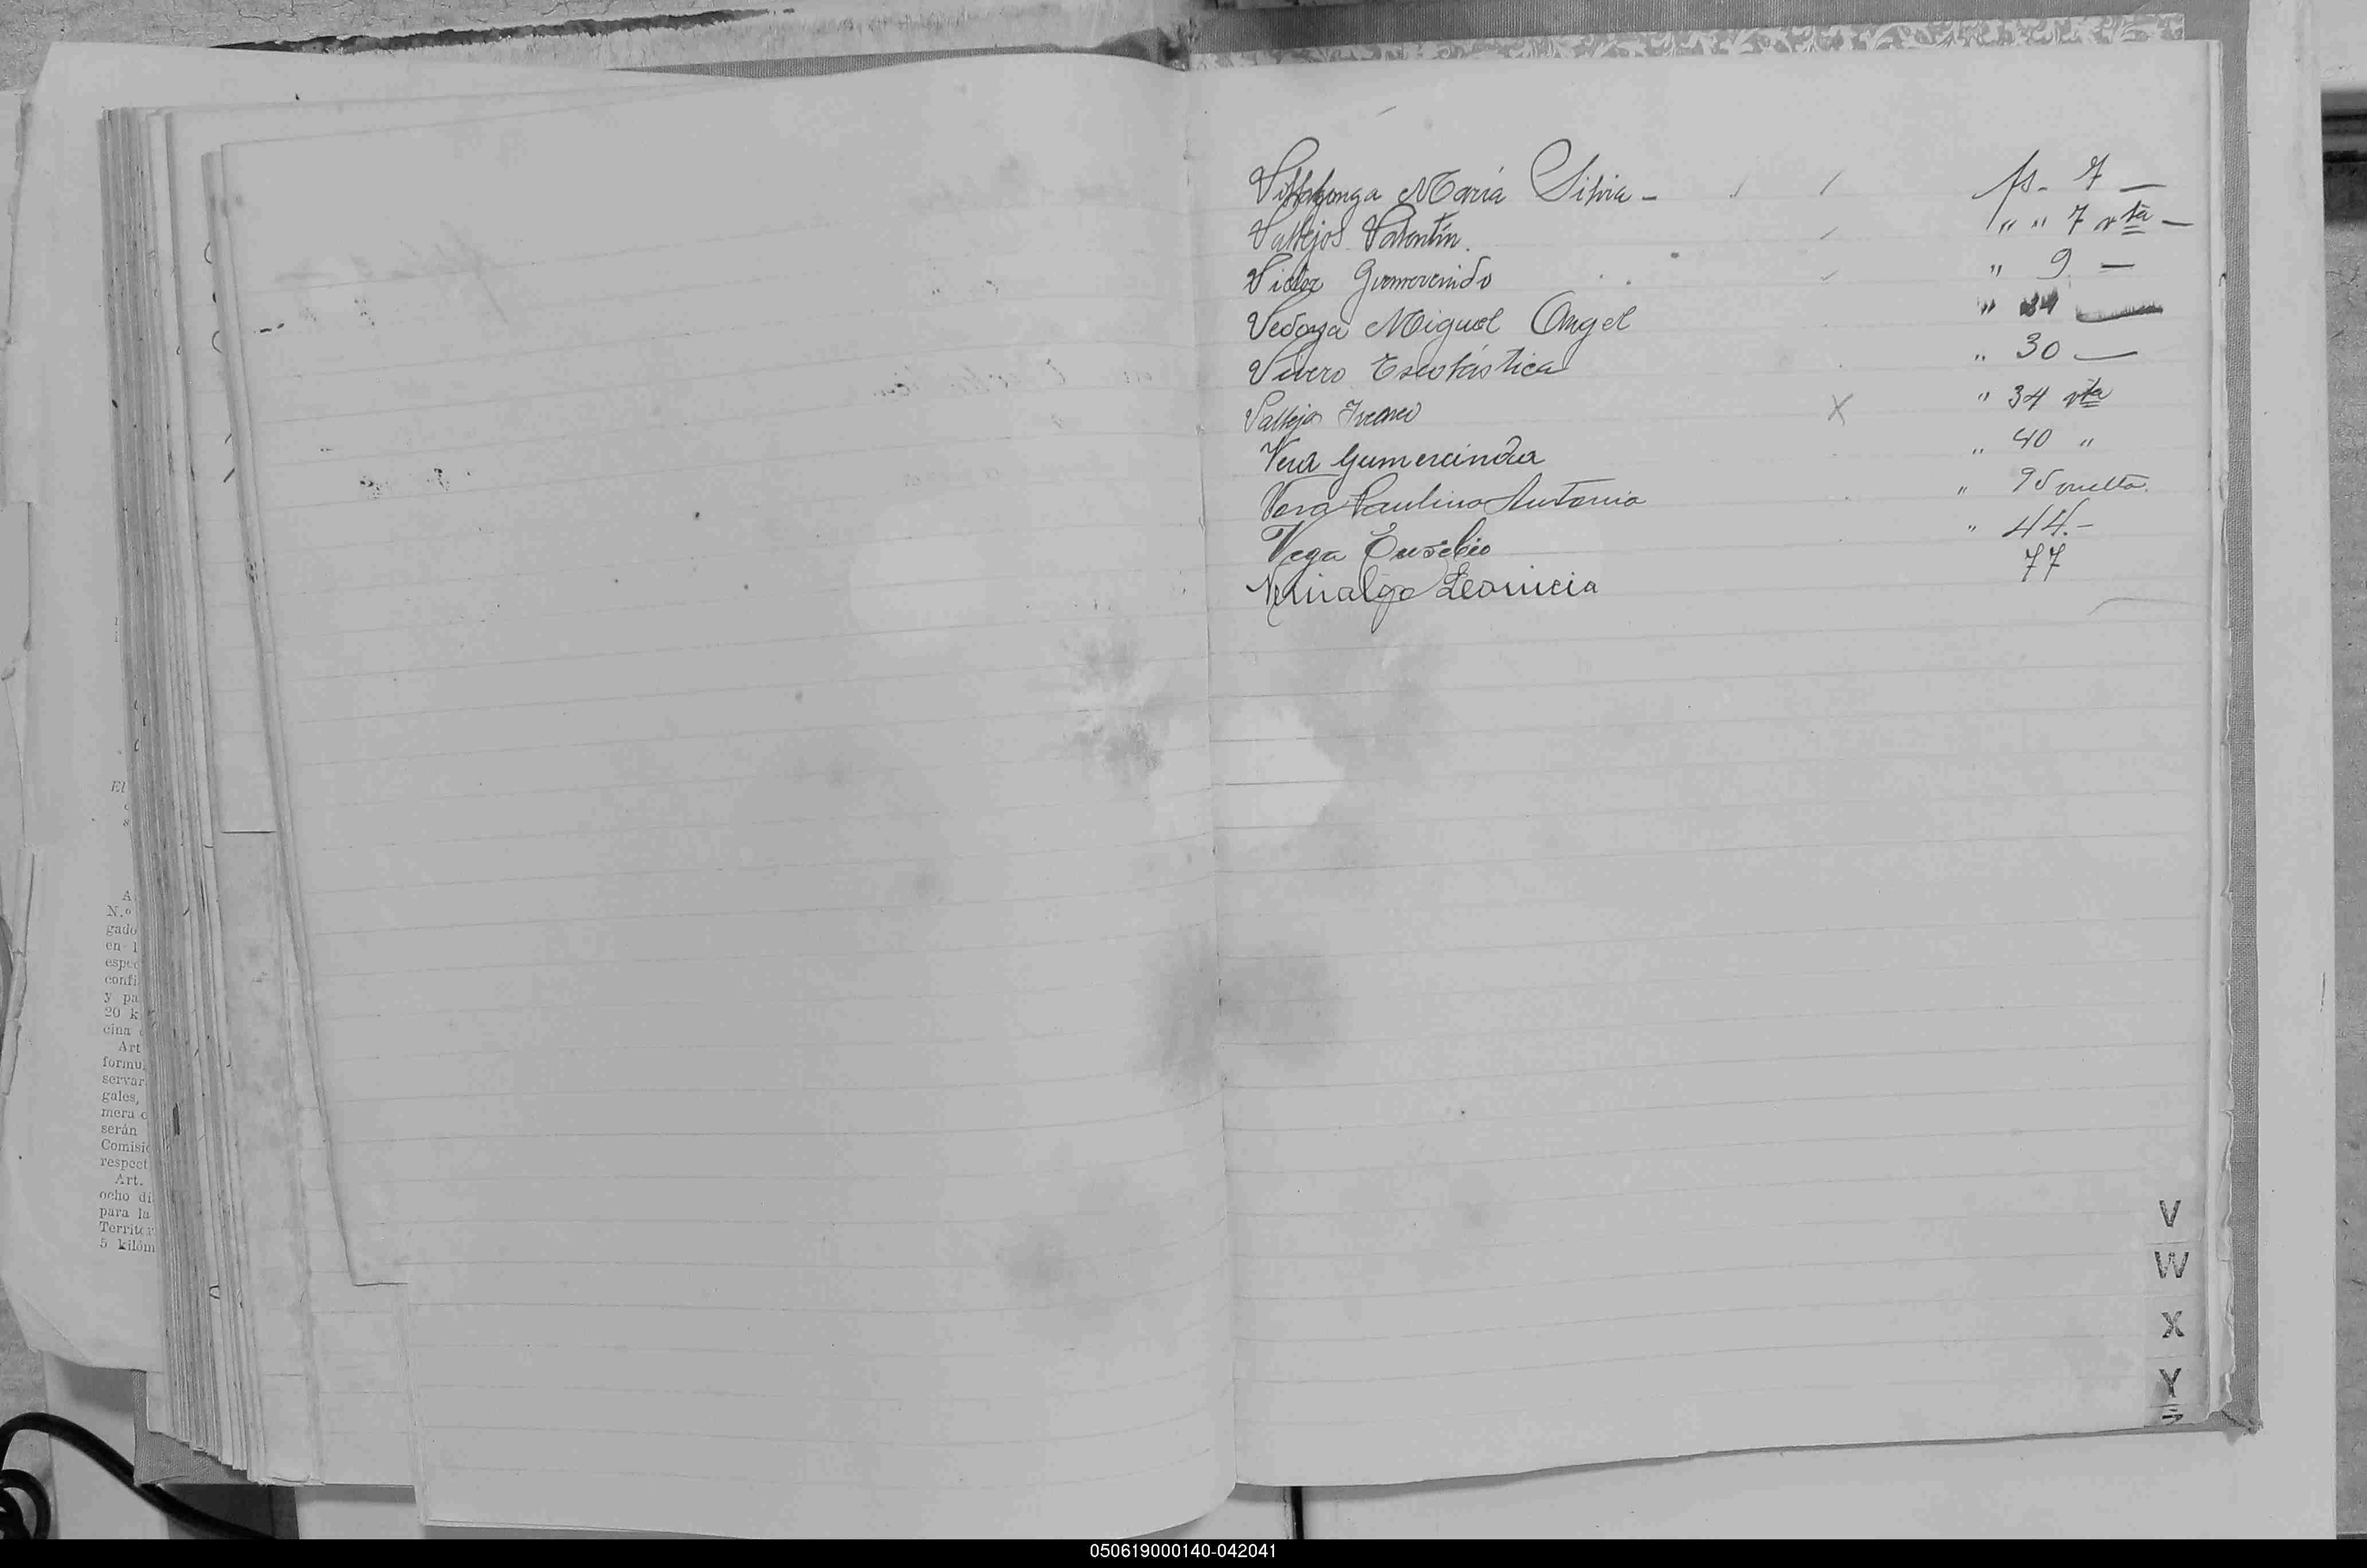 María Silvia - fs. 7 —
Vallejos Valentín. " " 7 vta —
" 9 —
Vedoya Miguel Angel " 24
Vivero Escolástica " 30 —
Vallejo " 34 vta
Vera Gumercinda " 40 "
Vera Paulino Antonio " 95 vuelta.
Vega Eusebio " 44.-
Leonicia 77
V
W
X
Y
El
N.º
gado
en l
espec
confi
y pa
20 k
cina
Art
formu
servar
gales,
mera
serán
Comisio
respect
Art.
ocho di
para la
Territor
5 kilóm
050619000140-042041